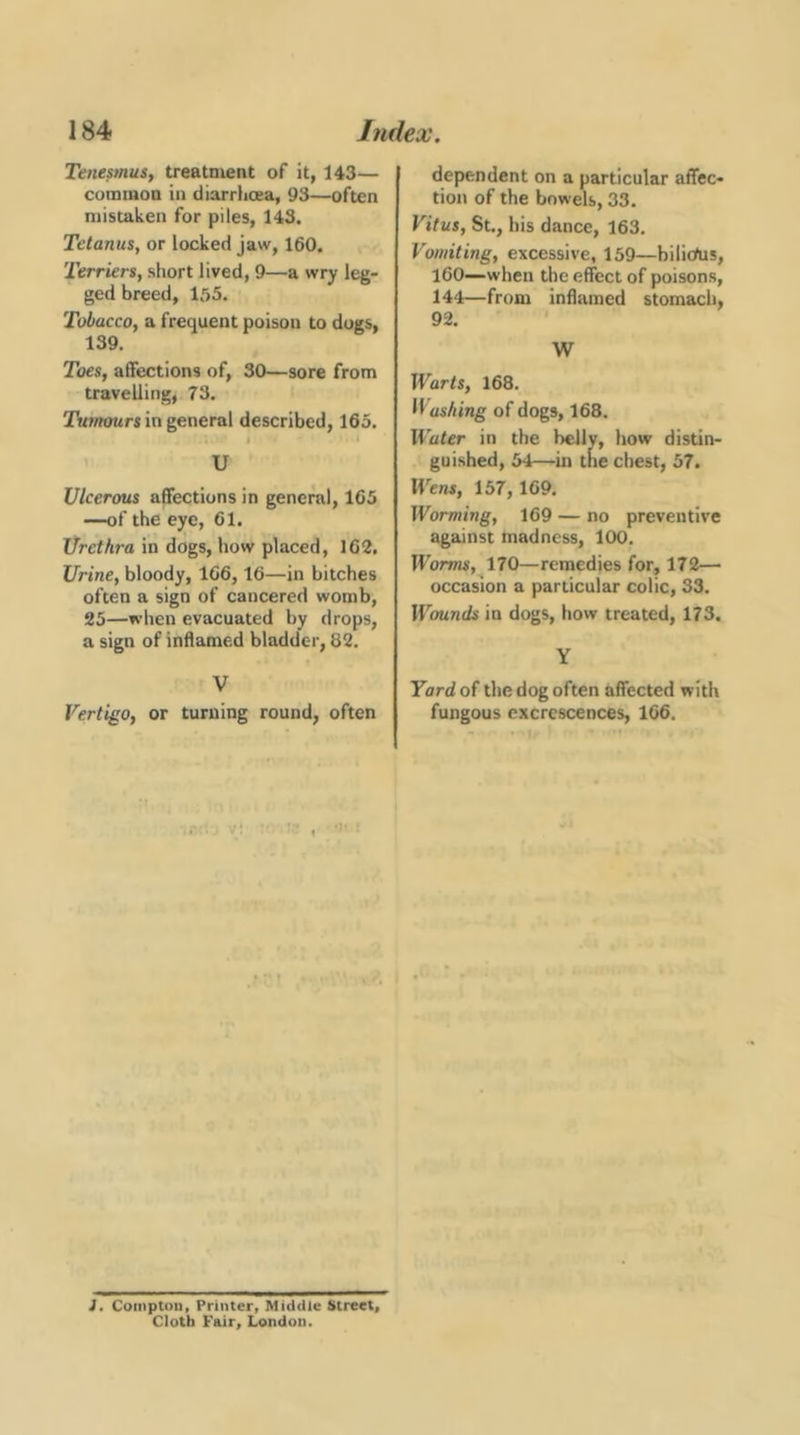 184 Index.
Tenesmus, treatment of it, 143—
common in diarrhœa, 93—often
mistaken for piles, 143.
Tetanus, or locked jaw, 160.
Terriers, short lived, 9—a wry leg-
ged breed, 155.
Tobacco, a frequent poison to dogs,
139.
Toes, affections of, 30—sore from
travelling, 73.
Tumours in general described, 165.
U
Ulcerous affections in general, 165
—of the eye, 61.
Urethra in dogs, how placed, 162.
Urine, bloody, 166, 16—in bitches
often a sign of cancered womb,
25—when evacuated by drops,
a sign of inflamed bladder, 82.
V
Vertigo, or turning round, often
dependent on a particular affec-
tion of the bowels, 33.
Vitus, St., his dance, 163.
Vomiting, excessive, 159—bilious,
160—when the effect of poisons,
144—from inflamed stomach,
92.
W
Warts, 168.
Washing of dogs, 168.
Water in the belly, how distin-
guished, 54—in the chest, 57.
Wens, 157, 169.
Worming, 169 — no preventive
against madness, 100.
Worms, 170—remedies for, 172—
occasion a particular colic, 33.
Wounds in dogs, how treated, 173.
Y
Yard of the dog often affected with
fungous excrescences, 166.
J. Compton, Printer, Middle Street,
Cloth Fair, London.